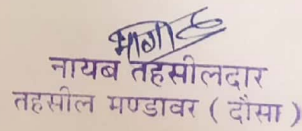 नायब तहसीलदार
तहसील मण्डावर ( दौसा )